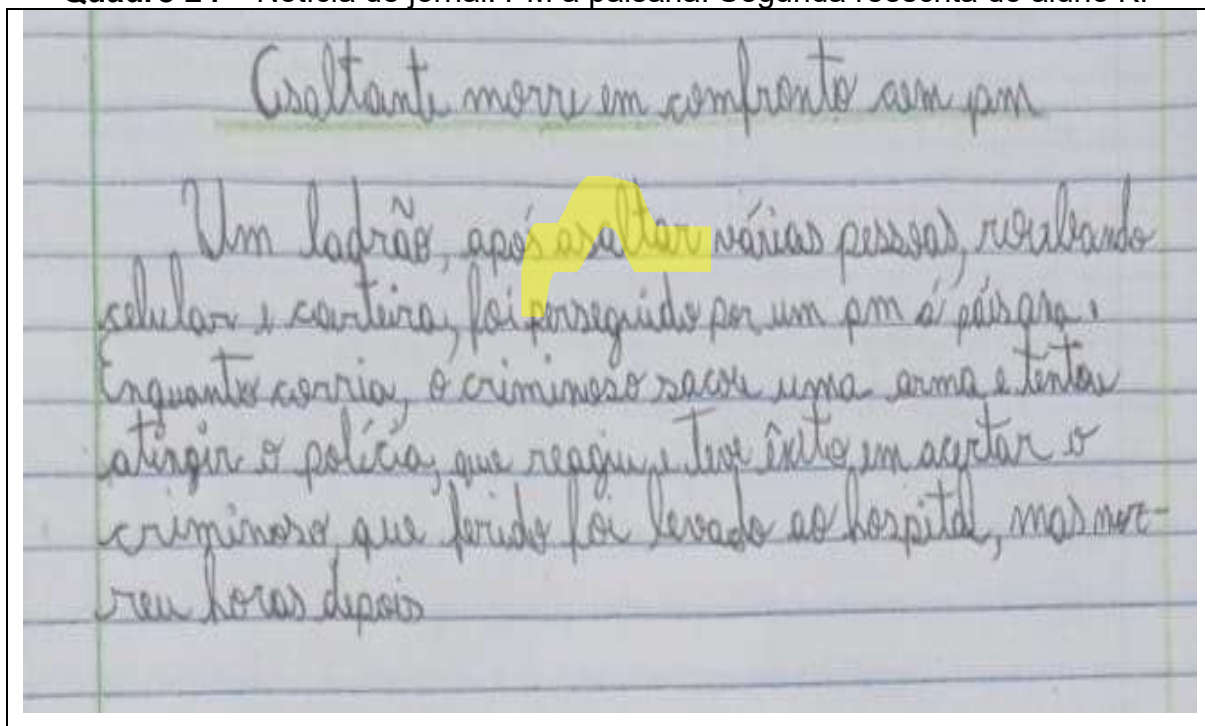 Asaltante morre em comfronto com pm
Um ladrão, após asaltar várias pessoas, roubando
celular e carteira, foi perseguido por um pm á páisana.
Enquanto corria, o criminoso sacou uma arma e tentou
atingir o polícia, que reagiu, e teve êxito em acertar o
criminoso, que ferido foi levado ao hospital, mas mor-
reu horas depois